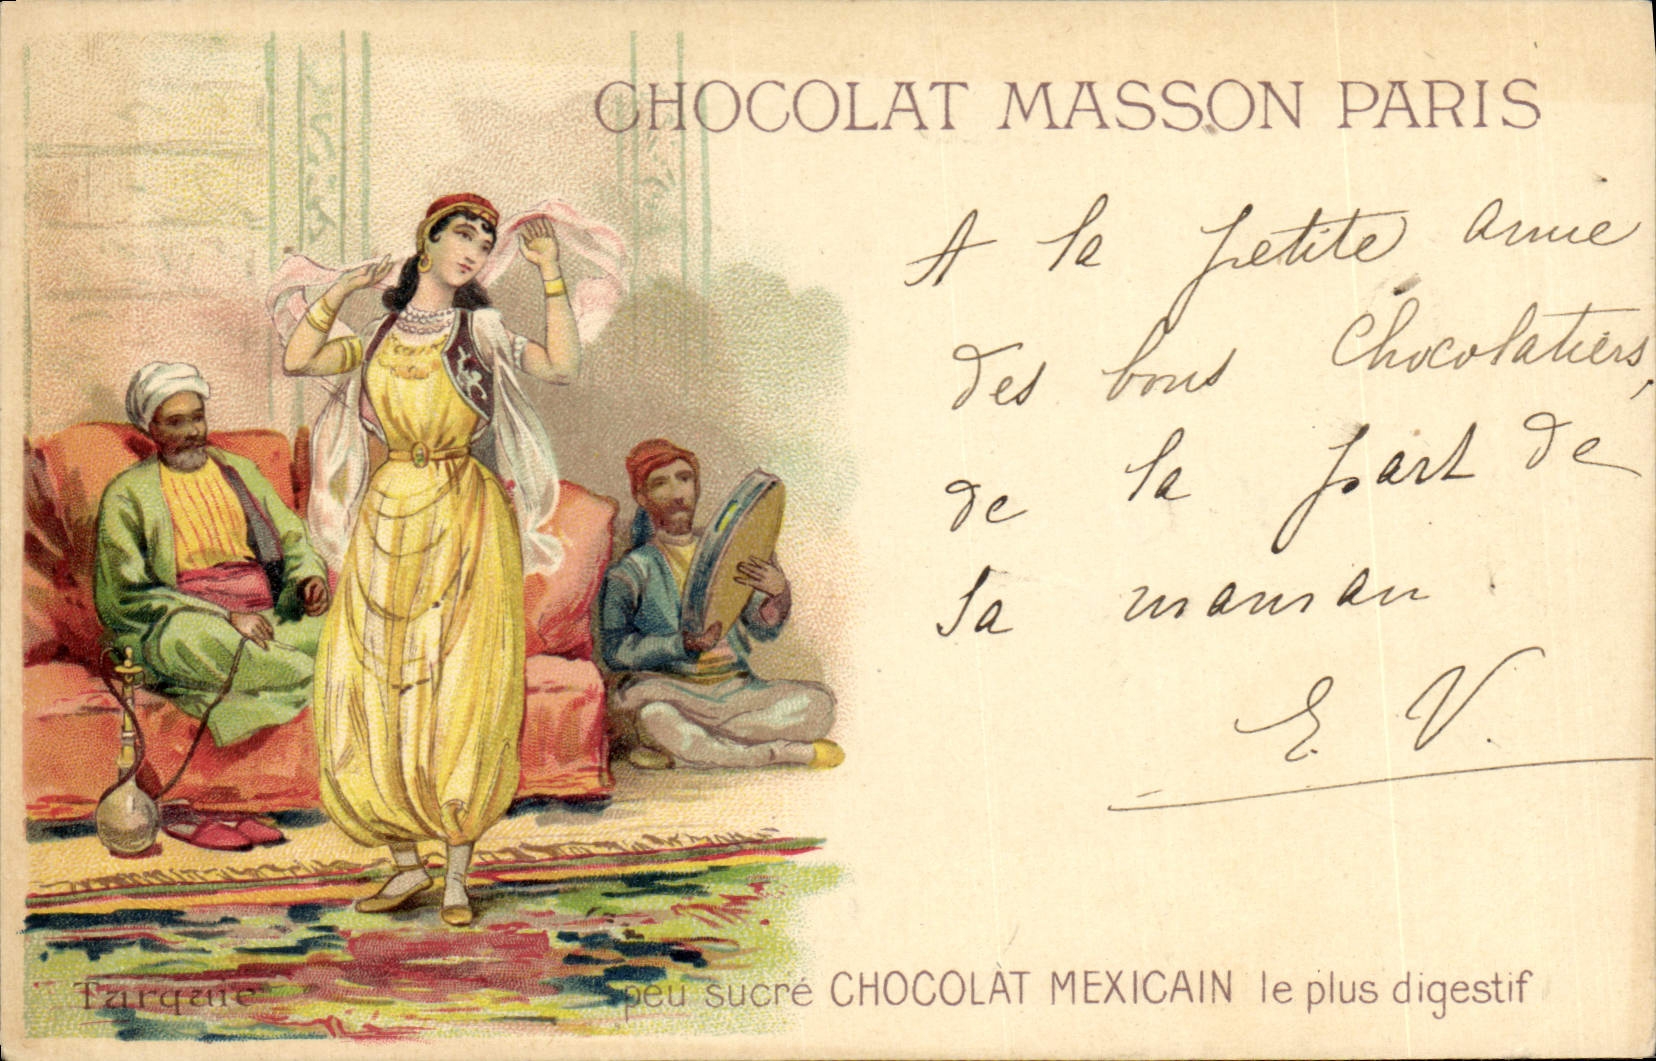 CHOCOLAT MASSON PARIS
A la petite amie
des bons Chocolatiers,
de la part de
sa maman.
E. V.
Turquie
peu sucré CHOCOLAT MEXICAIN le plus digestif